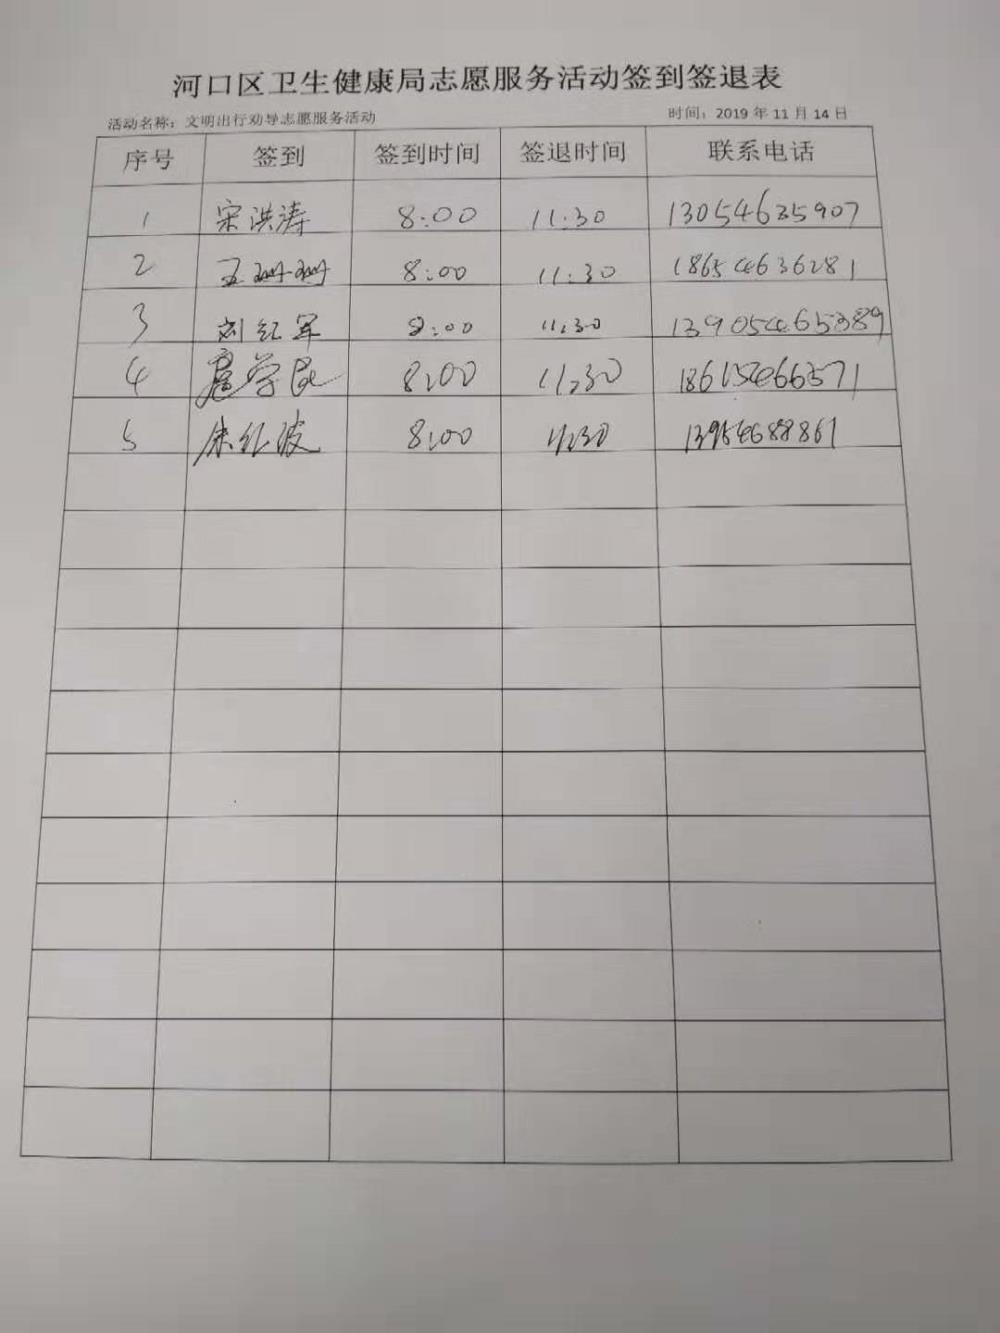 河口区卫生健康局志愿服务活动签到签退表
活动名称：文明出行劝导志愿服务活动 时间：2019 年 11 月 14 日
序号 签到 签到时间 签退时间 联系电话
1 宋洪涛 8:00 11:30 13054635907
2 王珊珊 8:00 11:30 18654636281
3 刘红军 8:00 11:30 13905465389
4 扈学民 8:00 11:30 18615466371
5 朱红波 8:00 11:30 13954688861